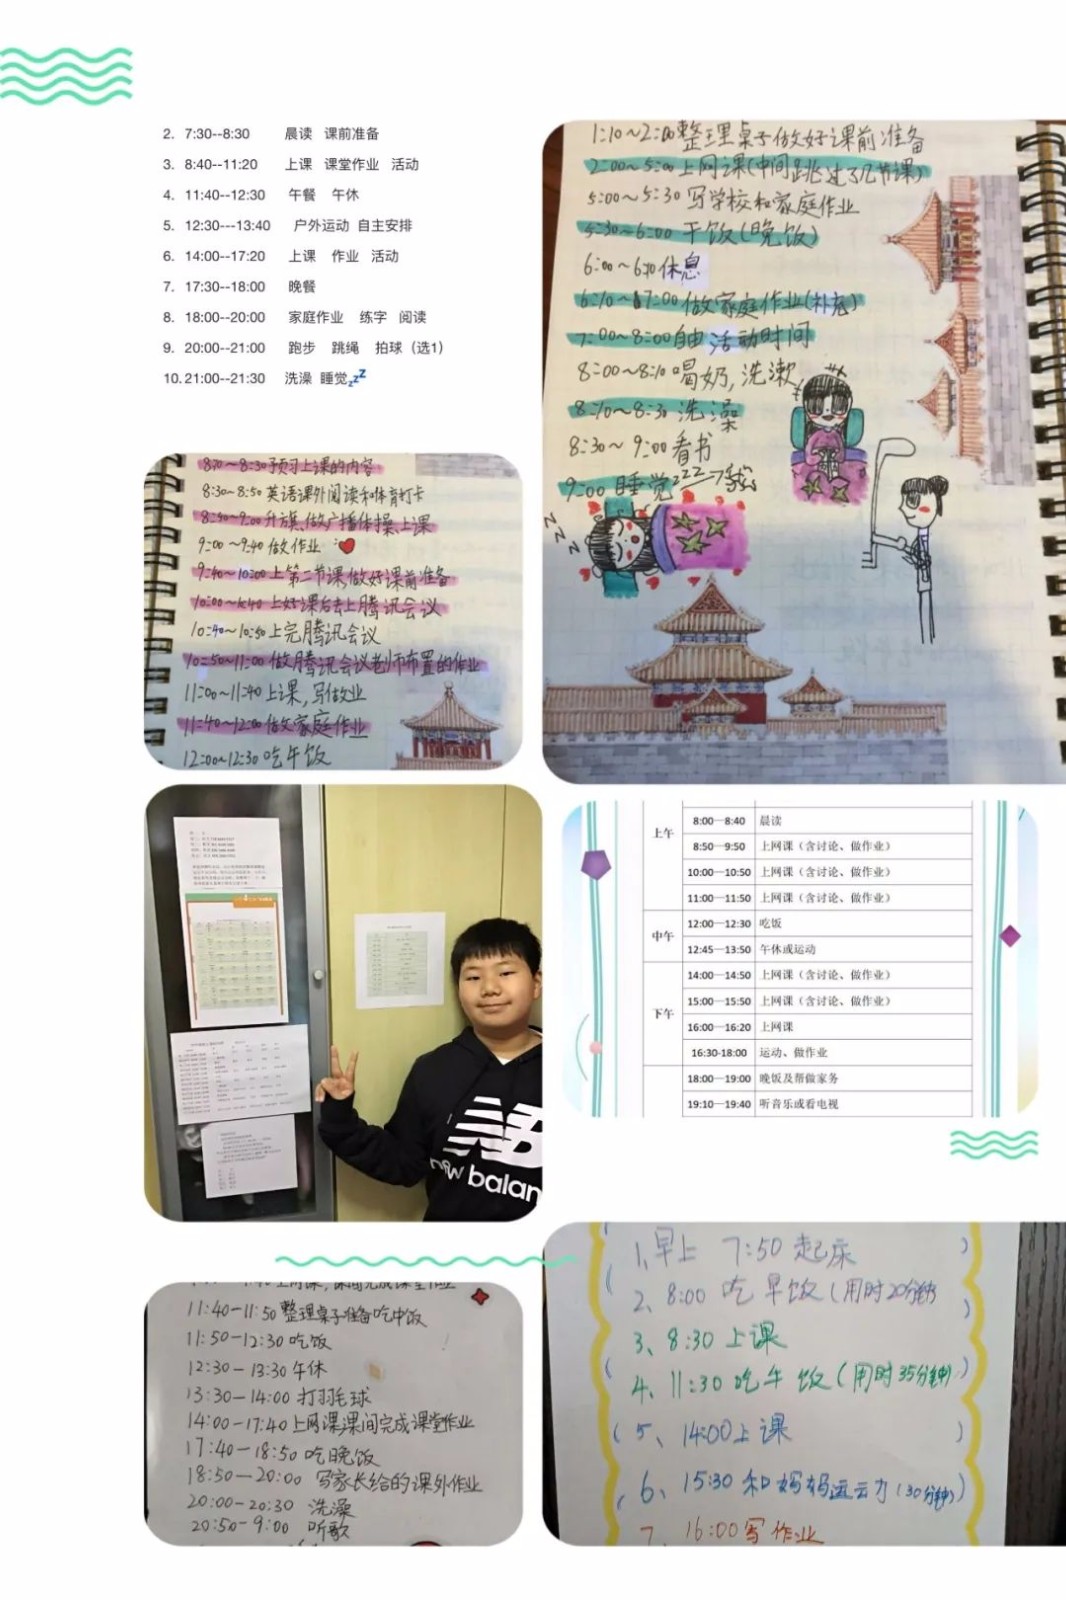 2. 7:30--8:30 晨读 课前准备
3. 8:40--11:20 上课 课堂作业 活动
4. 11:40--12:30 午餐 午休
5. 12:30---13:40 户外运动 自主安排
6. 14:00--17:20 上课 作业 活动
7. 17:30--18:00 晚餐
8. 18:00--20:00 家庭作业 练字 阅读
9. 20:00--21:00 跑步 跳绳 拍球（选1）
10.21:00--21:30 洗澡 睡觉zzZ
1:10~2:00整理桌子做好课前准备
2:00~5:00上网课(中间跳过了几节课)
5:00~5:30写学校和家庭作业
5:30~6:00干饭(晚饭)
6:00~6:10休息
6:10~7:00做家庭作业(补充)
7:00~8:00自由活动时间
8:00~8:10喝奶,洗漱
8:10~8:30洗澡
8:30~9:00看书
9:00睡觉zzz
zzz
~8:30预习上课的内容
8:30~8:50英语课外阅读和体育打卡
8:50~9:00升旗、做广播体操、上课
9:00~9:40做作业
9:40~10:00上第二节课,做好课前准备
10:00~10:40上好课后去上腾讯会议
10:40~10:50上完腾讯会议
10:50~11:00做腾讯会议老师布置的作业
11:00~11:40上课,写做业
11:40~12:00做家庭作业
12:00~12:30吃午饭
上午
8:00—8:40 晨读
8:50—9:50 上网课（含讨论、做作业）
10:00—10:50 上网课（含讨论、做作业）
11:00—11:50 上网课（含讨论、做作业）
中午
12:00—12:30 吃饭
12:45—13:50 午休或运动
下午
14:00—14:50 上网课（含讨论、做作业）
15:00—15:50 上网课（含讨论、做作业）
16:00—16:20 上网课
16:30-18:00 运动、做作业
18:00—19:00 晚饭及帮做家务
19:10—19:40 听音乐或看电视
NB
new balan
11:40-11:50整理桌子准备吃中饭
11:50-12:30吃饭
12:30-13:30午休
13:30-14:00打羽毛球
14:00-17:40上网课,课间完成课堂作业
17:40-18:50吃晚饭
18:50-20:00 写家长给的课外作业
20:00-20:30 洗澡
20:50-9:00 听歌
1、早上 7:50起床
2、8:00 吃早饭(用时20分钟)
3、8:30上课
4、11:30吃午饭(用时35分钟)
5、14:00上课
6、15:30和妈妈运动(30分钟)
7、16:00写作业